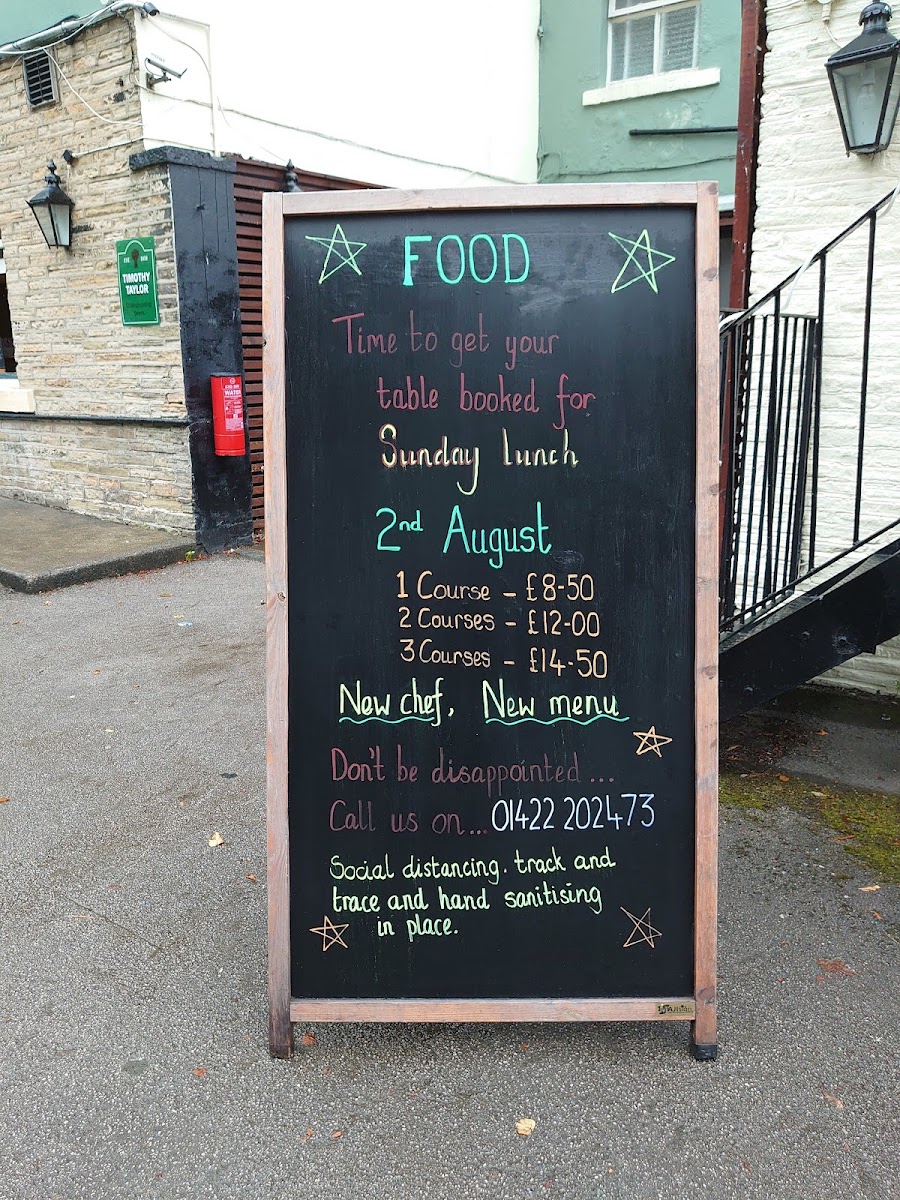 FOOD
Time to get your
table booked for
Sunday lunch
2nd August
1 Course - £8-50
2 Courses - £12-00
3 Courses - £14-50
New chef, New menu
Don't be disappointed ...
Call us on... 01422 202473
Social distancing. track and
trace and hand sanitising
in place.
TIMOTHY
TAYLOR
WATER